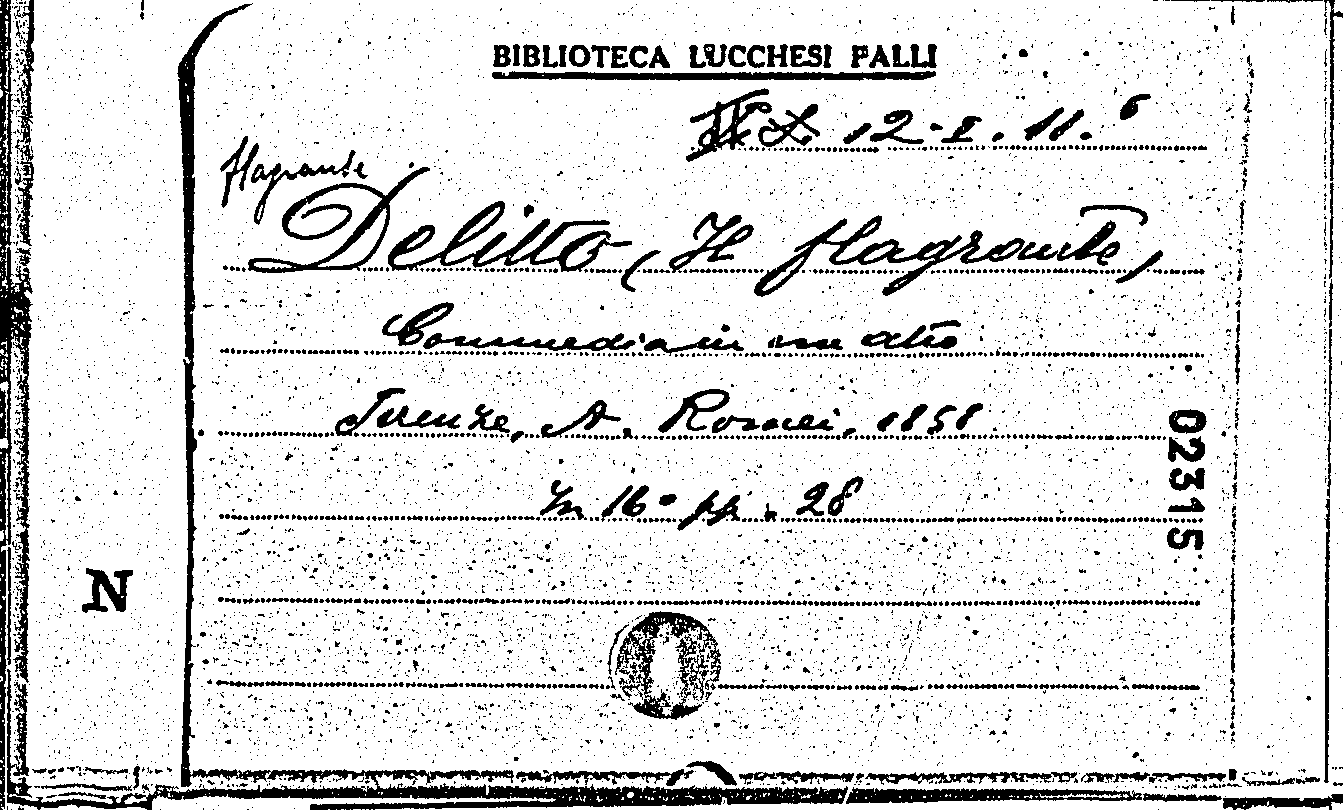 BIBLIOTECA LUCCHESI PALLI
L. 12-I. 11.6
flagrante
Delitto (Il flagrante)
Commedia in un atto
Firenze, A. Romei, 1858
In 16º pp. 28
02315
N